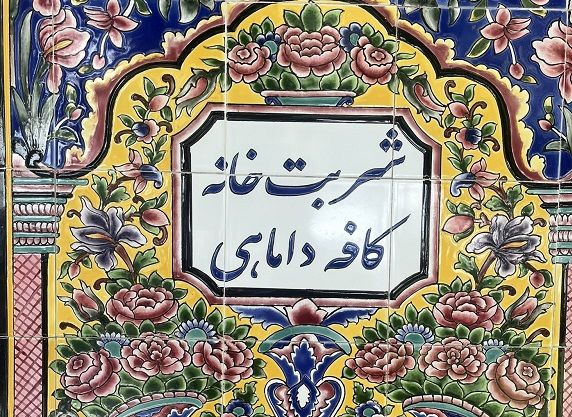 شربت خانه
کافه داماهی